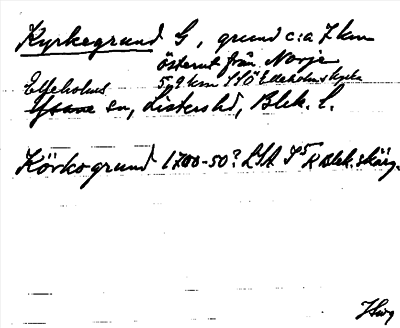 Kyrkegrund G, grund c:a 7 km
österut från Norje
Elleholms 5,9 km SSÖ Elleholms kyrka
Ysane sn, Listers hd, Blek. l.
Körkogrund 1700-50? LSA S5 R Blek. skärg.